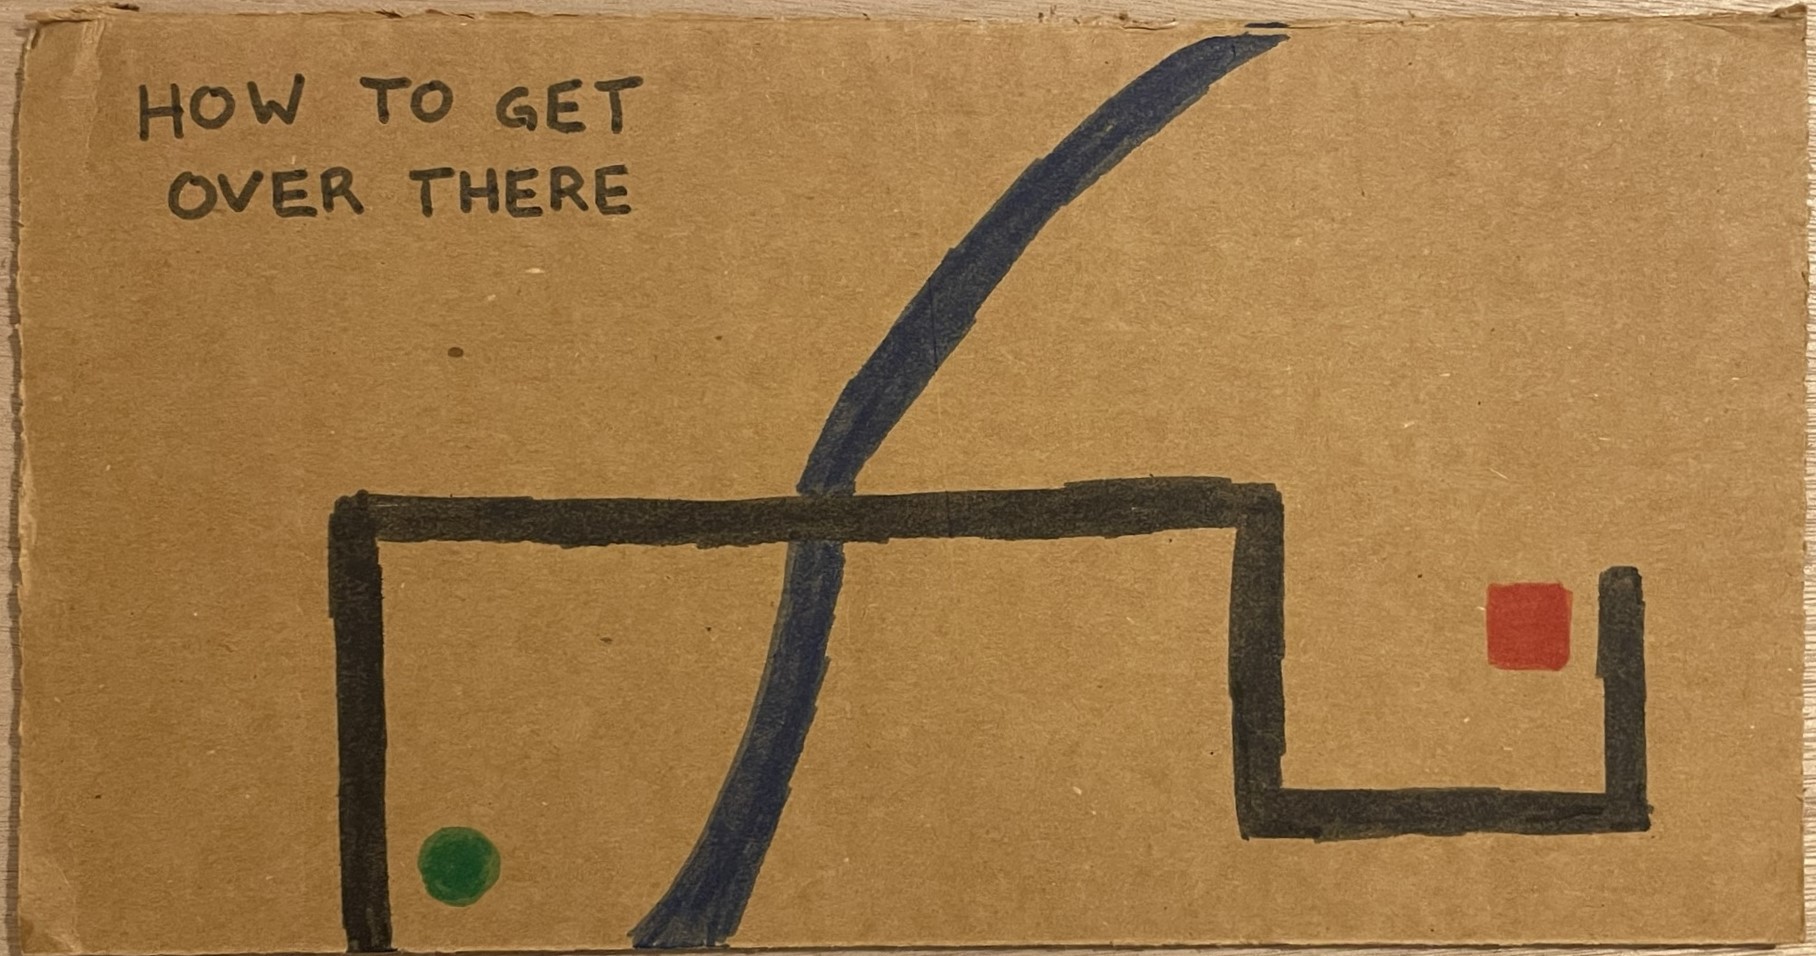 HOW TO GET
OVER THERE